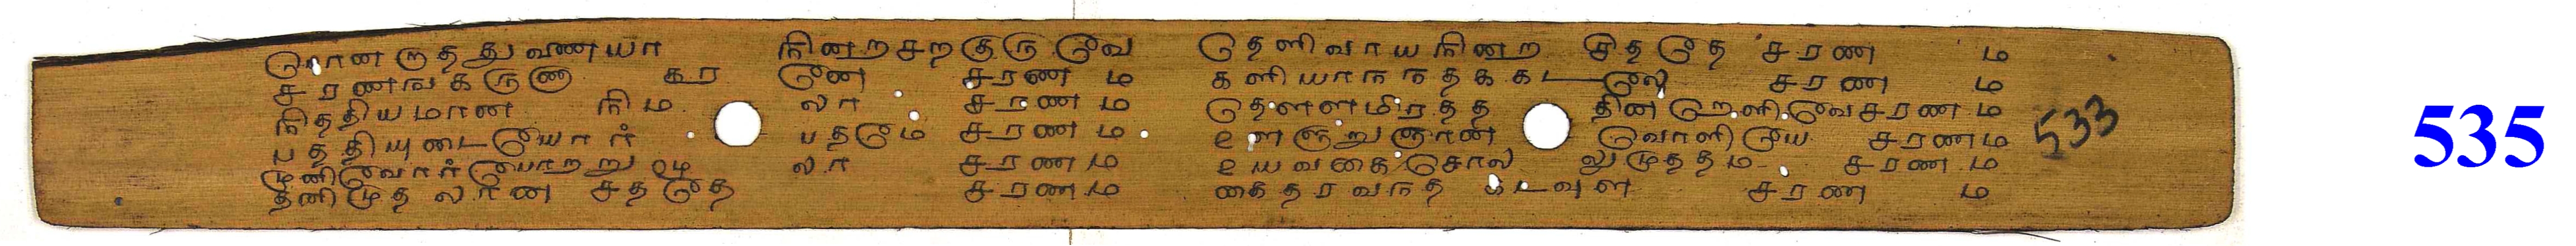 நினறசறகுருவெ தெளிவாயநினற சிததெ சரணம
சரணஙகருணாகரனெ சரணம களியாநநதககடலெ சரணம
நிததியமான நிமலா சரணம தெளளமிரதத தினறெளிவெசரணம
பததியுடையோர் பதமெ சரணம உளளுறுஞான வொளியெ சரணம
முனிவோர்போற்று லா சரணம உயவகை சொல லுமுததம சரணம
தனிமுதலான சததெ சரணம கைதரவநத கடவுள சரணம
533
535